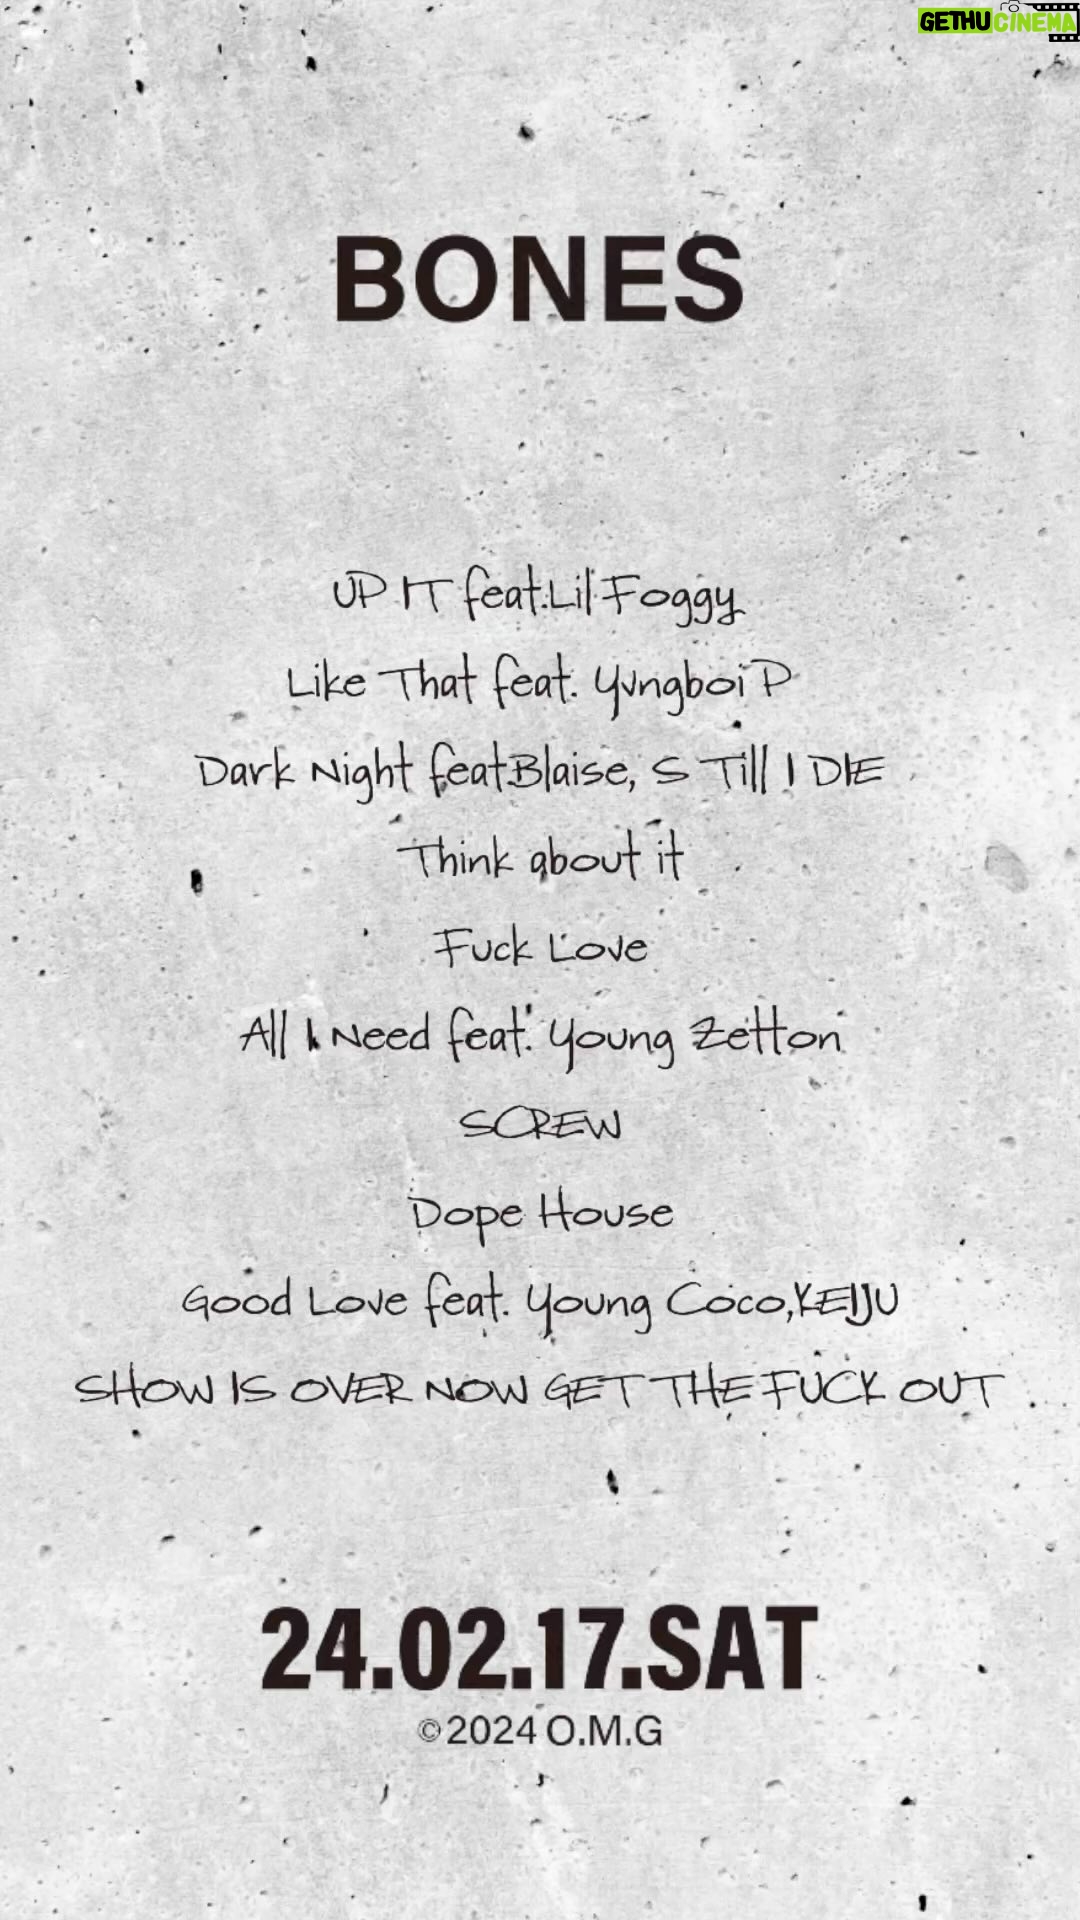 GETHUCINEMA
BONES
UP IT feat.Lil Foggy
Like That feat. Yvngboi P
Dark Night feat.Blaise, S Till I DIE
Think about it
Fuck Love
All I Need feat. Young Zetton
SCREW
Dope House
Good Love feat. Young Coco,KEIJU
SHOW IS OVER NOW GET THE FUCK OUT
24.02.17.SAT
©2024 O.M.G